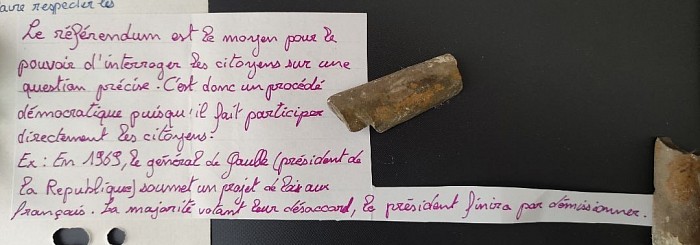 faire respecter les
Le référendum est le moyen pour le
pouvoir d'interroger les citoyens sur une
question précise. C'est donc un procédé
démocratique puisqu'il fait participer
directement les citoyens.
Ex : En 1969, le général de Gaulle (président de
la Republique) soumet un projet de lois aux
français. La majorité votant leur désaccord, le président finira par démissionner.